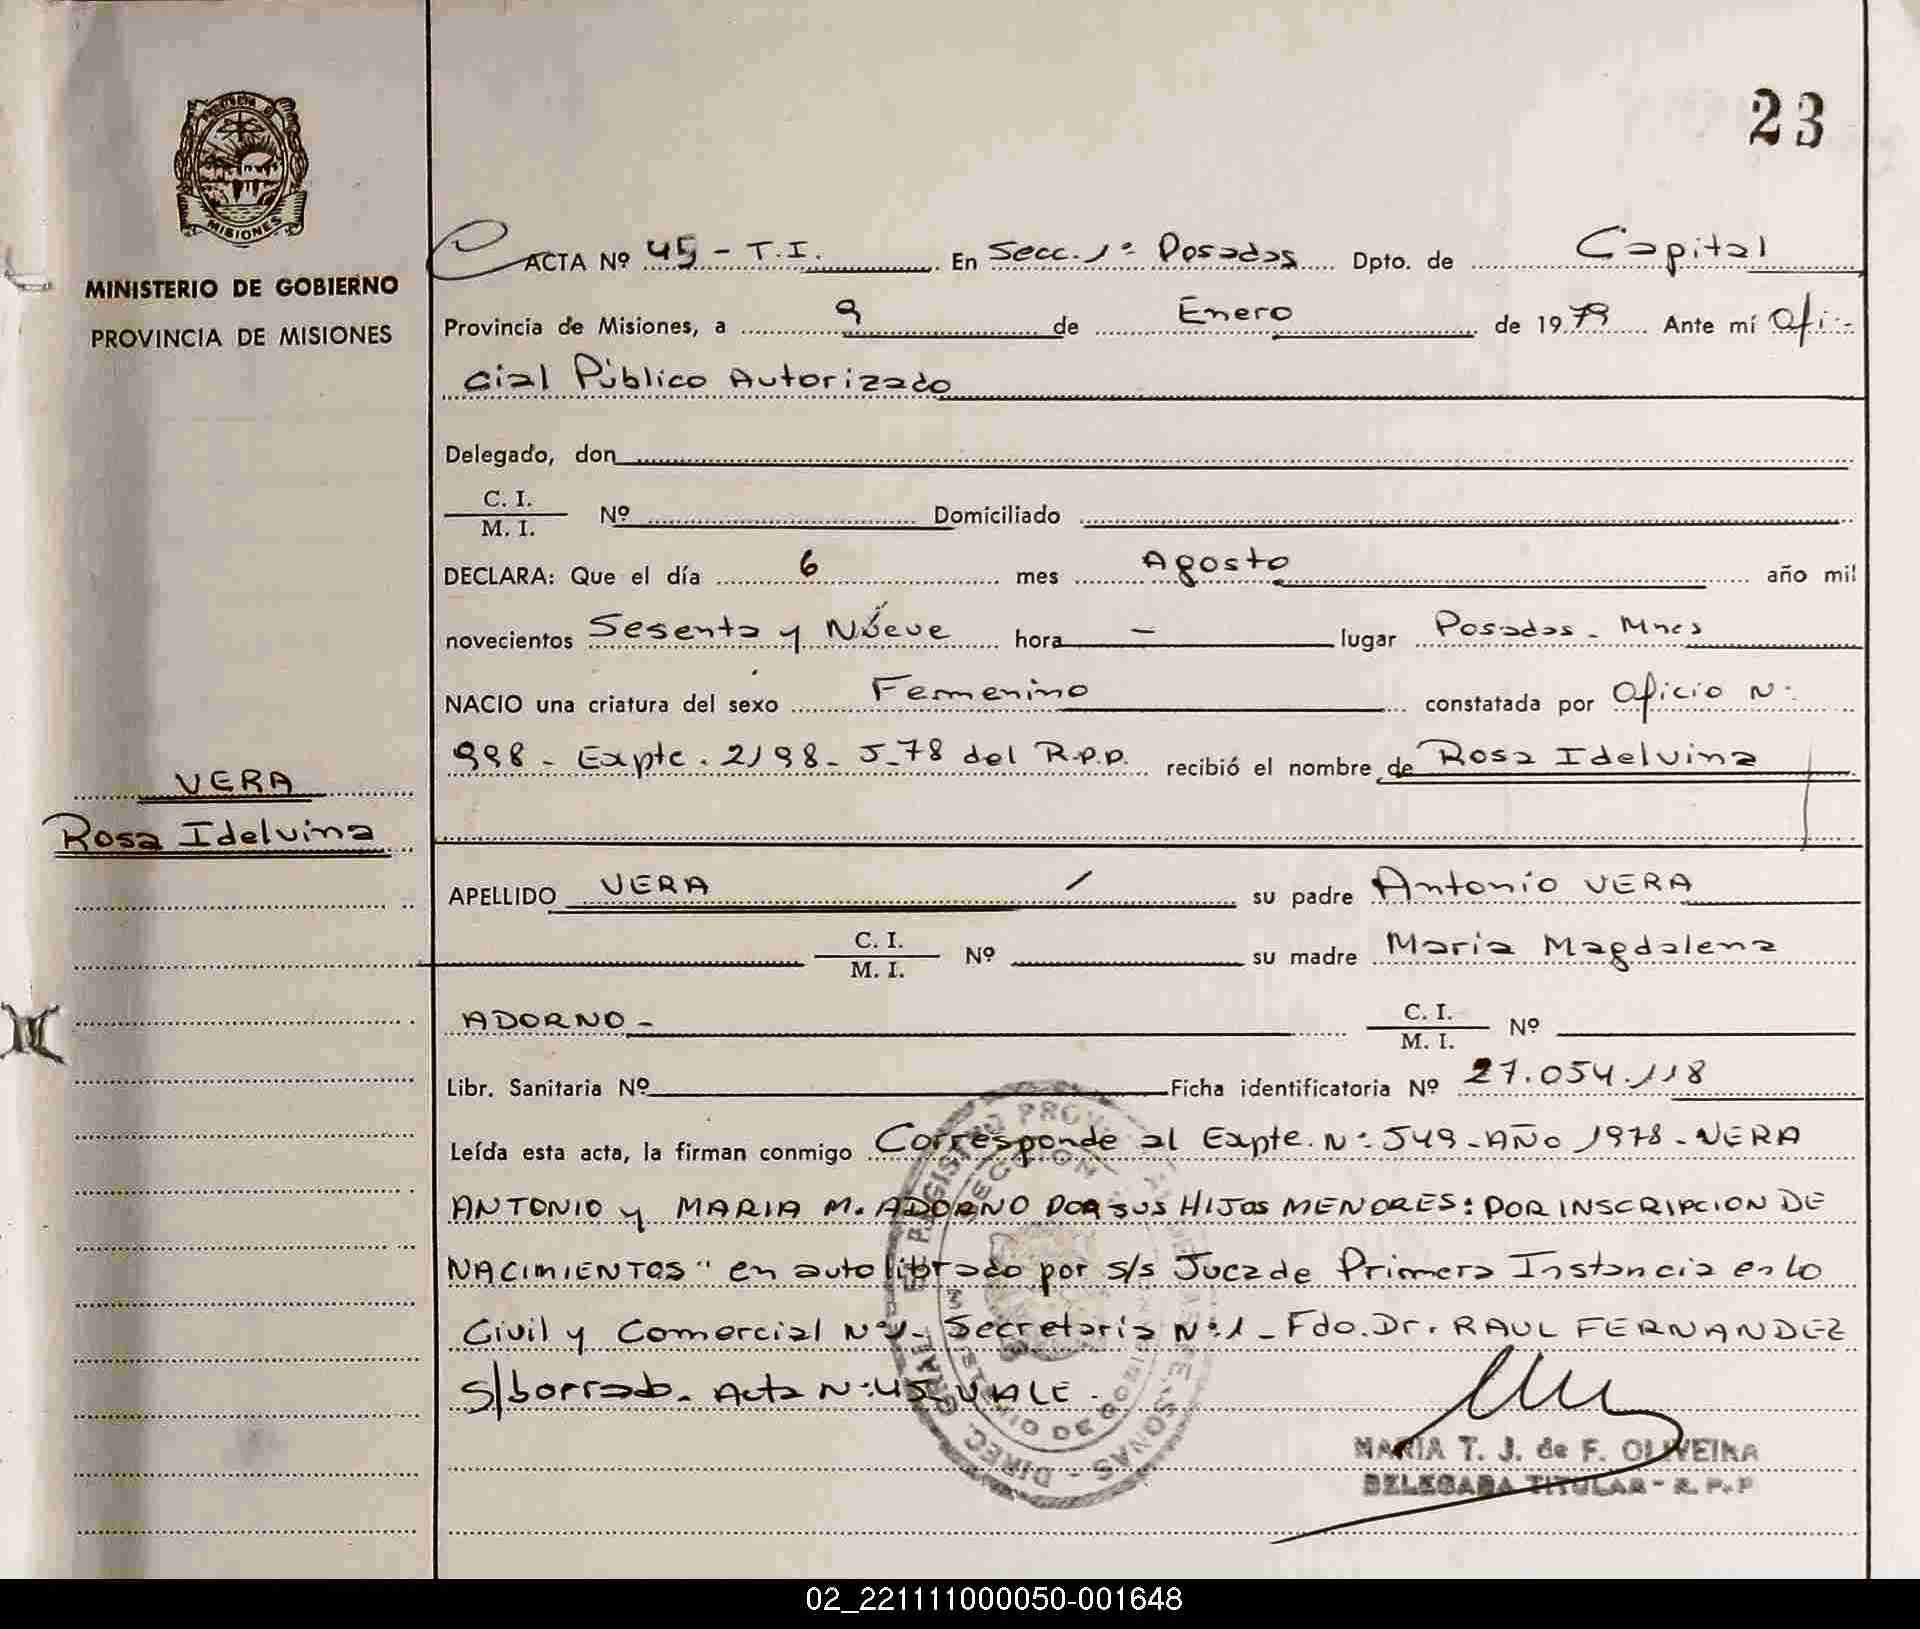 23
MISIONES
MINISTERIO DE GOBIERNO
PROVINCIA DE MISIONES
VERA
Rosa Idelvina
ACTA Nº 45 - T.I. En Secc. 1ª Posadas Dpto. de Capital
Provincia de Misiones, a 9 de Enero de 1979 Ante mí Ofi-
cial Público Autorizado
Delegado, don
C. I.
M. I. Nº Domiciliado
DECLARA: Que el día 6 mes Agosto año mil
novecientos Sesenta y Nueve hora - lugar Posadas - Mnes
NACIO una criatura del sexo Femenino constatada por Oficio Nº
998 - Expte. 2198 - J-78 del R.P.P. recibió el nombre de Rosa Idelvina
APELLIDO VERA su padre Antonio VERA
C. I.
M. I. Nº su madre Maria Magdalena
ADORNO - C. I.
M. I. Nº
Libr. Sanitaria Nº Ficha identificatoria Nº 27.054.118
Leída esta acta, la firman conmigo Corresponde al Expte. Nº 549 - AÑO 1978 - VERA
ANTONIO y MARIA M. ADORNO POR SUS HIJOS MENORES: POR INSCRIPCION DE
NACIMIENTOS" en auto librado por s/s Juez de Primera Instancia en lo
Civil y Comercial Nº 1 - Secretaria Nº 1 - Fdo. Dr. RAUL FERNANDEZ
s/borrado. Acta Nº 45 VALE.
MARIA T. J. de F. OLIVEIRA
DELEGADA TITULAR - R. P. P
02_221111000050-001648